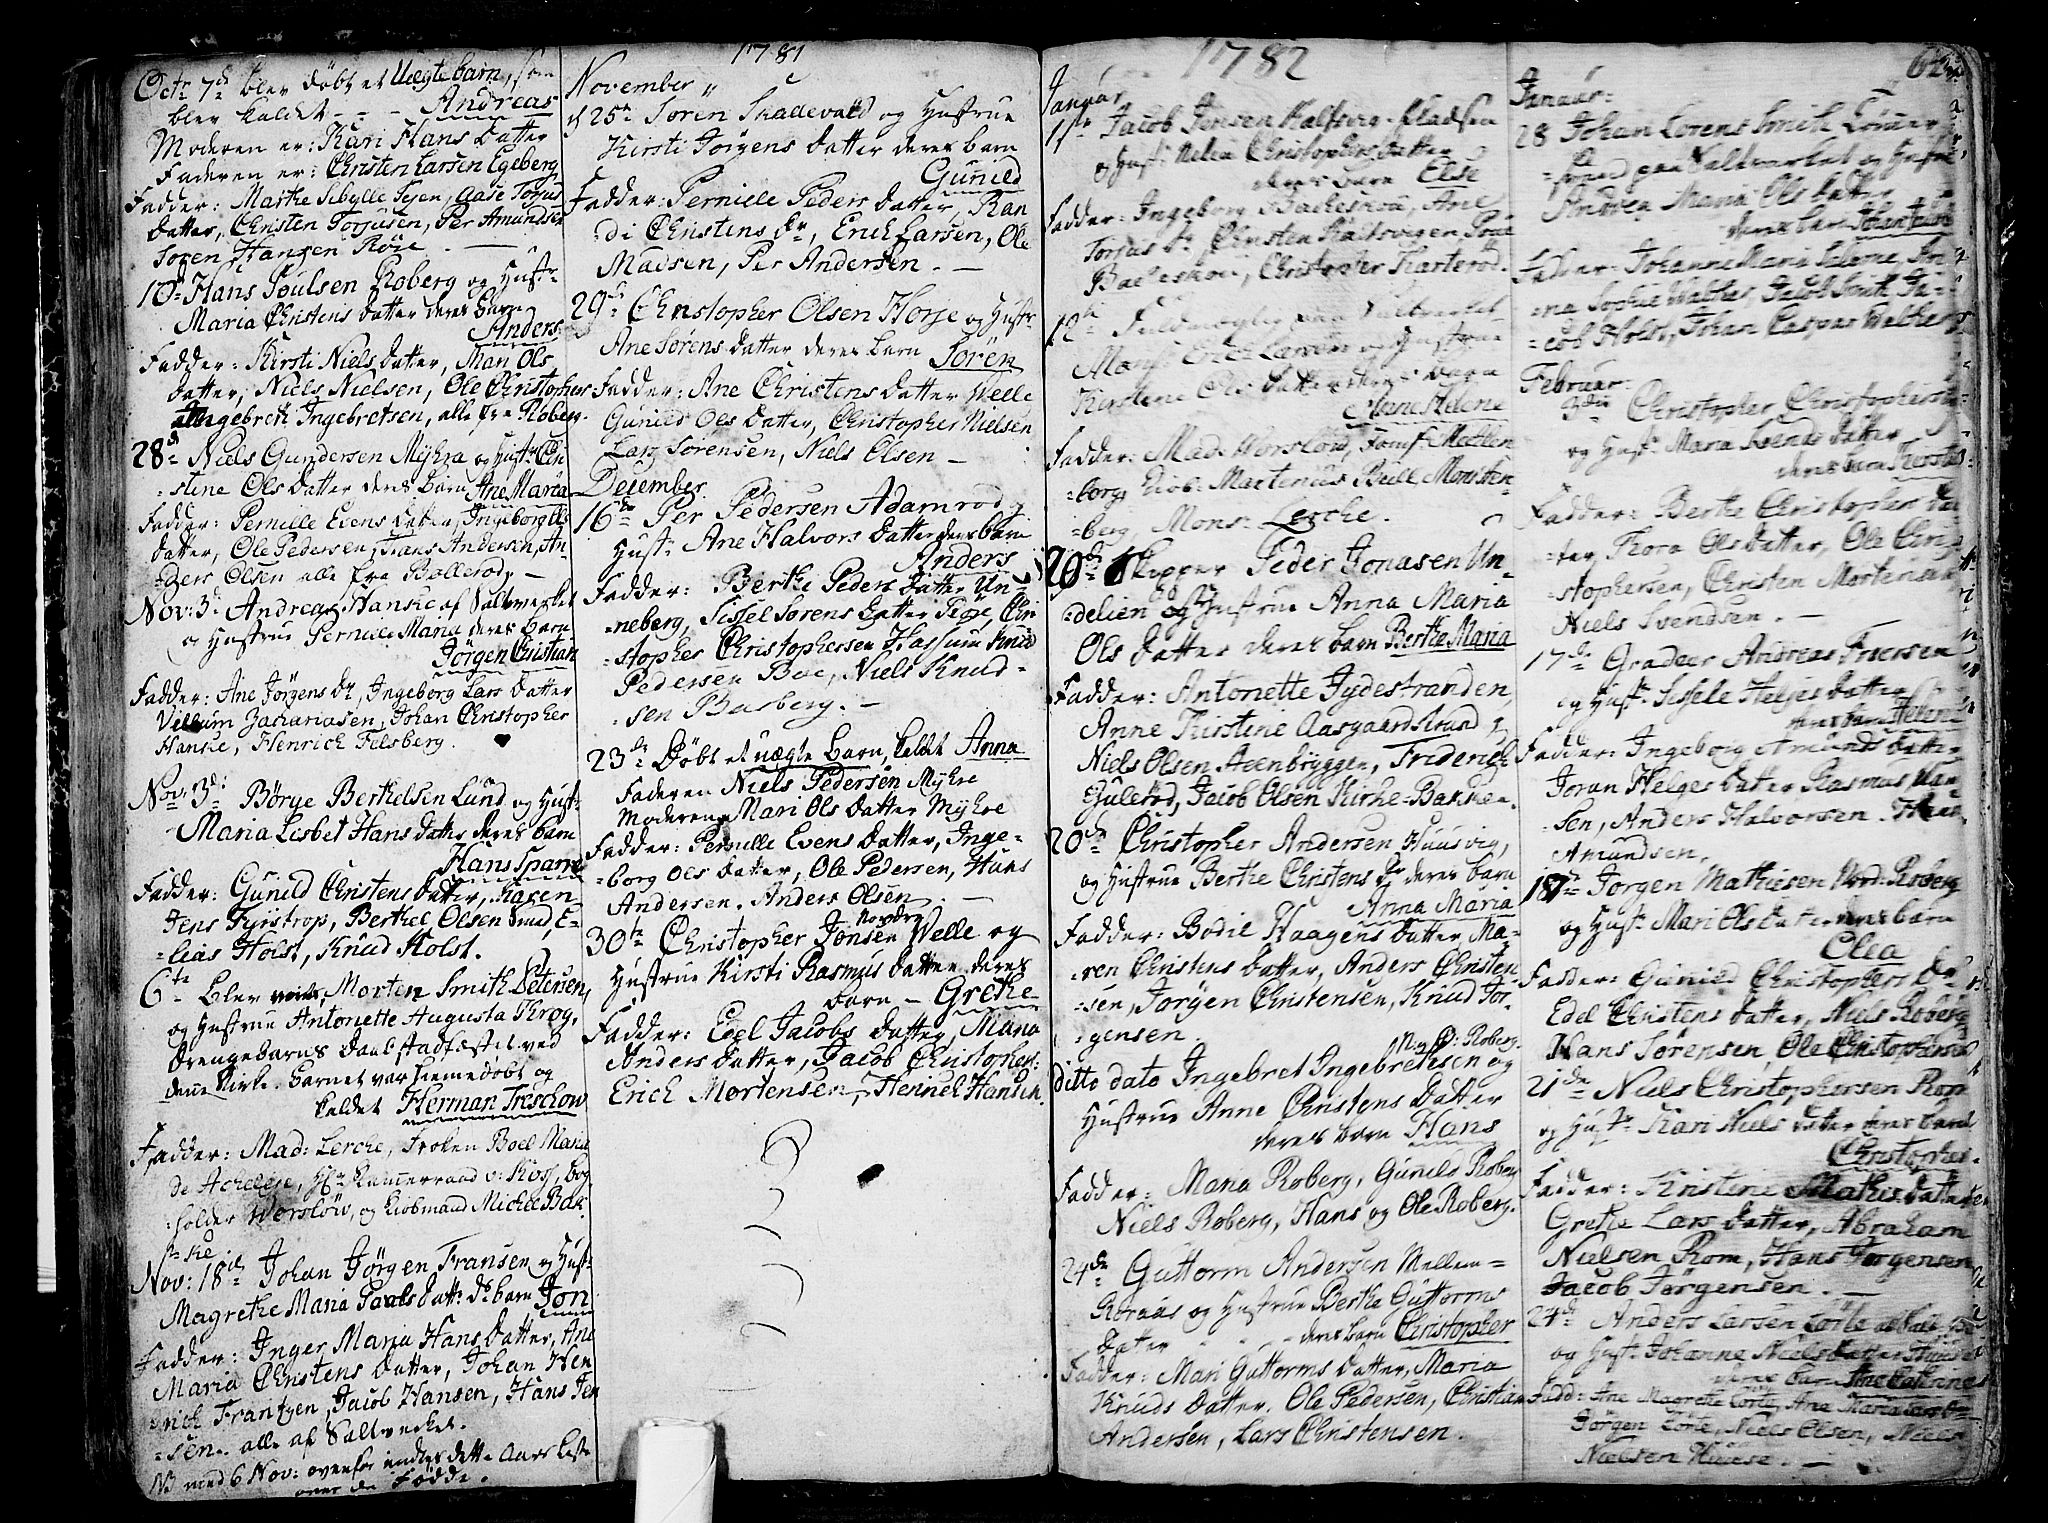 1781
Octr 7de blev døbt et Uægte barn, som
blev kaldet - - - Andreas
Moderen er: Kari Hans datter
Faderen er: Christen Larsen Egeberg
Fadder: Marthe Sibylle Sejen, Aase Torjus
datter, Christen Torjusen, Per Amundsen
Soren Hansen Røie
10d Hans Poulsen Roberg og Hustr.
Maria Christens datter deres barn
Anders
Fadder: Kirsti Niels datter, Mari Ols
datter, Niels Nielsen, Ole Christophers
Ingebreth Ingebretsen, alle fra Roberg.
28d Niels Gundersen Myhra og Hustr Chri
-stine Ols datter deres barn Ane Maria
Fadder: Pernille Evens datter, Ingeborg Ols
datter, Ole Pedersen, Hans Andersen, An
-ders Olsen alle fra Bollerød. -
Nov: 3d. Andreas Hanske af Saltverket
og Hustrue Pernille Maria deres barn
Jørgen Christian
Fadder: Ane Jørgens dr, Ingeborg Lars datter
Villum Zachariasen, Johan Christopher
Hanske, Henrich Felsberg.
Nov: 3d: Børge Berthelsen Lund og Hust:
Maria Lisbet Hans datter deres barn
Hans Sparre
Fadder: Gunild Christens datter, Karen
Jens Fyrstrop, Berthel Olsen Smed, E-
-lias Holst, Knud Holst.
6te Blev Morten Smith Petersen,
og Hustrue Antonette Augusta Krog,
drengebarns daab stadfæstet ved
denne Kirke. barnet var hiemedøbt og
kaldet Herman Treschow
Fadder: Mad: Lerche, Froken Boel Maria
de Acheleye, Hr Kammerraad v: Koss, bog
-holder Worsløw, og Kiobmand Michel Bak-
-ke
Nov: 18d Johan Jørgen Fransen og Hust:
Magrethe Maria Paals datt: ds barn Jon
Fadder: Inger Maria Hans datter, Ane
Maria Christens datter, Johan Hen
-rich Frantzen, Jacob Hansen, Hans Jen
-sen. alle af Saltverket.
NB med 6 Nov: ovenfor endes dette Aars liste
over de Fødde.
November
d 25de Soren Skadevald og Hustrue
Kirsti Jörgens datter deres barn
Gunild
Fadder: Pernille Peders datter, Ran
-di Christens dr, Erich Larsen, Ole
Madsen, Per Andersen. -
29de Christopher Olsen Horje og Hustr.
Ane Sørens datter deres barn Sören
Fadder: Ane Christens datter Welle
Gunild Ols datter, Christopher Nielsen
Lars Sørensen, Niels Olsen -
December.
16de Per Pedersen Adamrod og
Hust: Ane Halvors datter deres barn
Anders
Fadder: Berthe Peders datter Un-
-neberg, Sissel Sørens datter, Chri
-stopher Christophersen Hassum Knud
Pedersen Boe, Niels Knud-
-sen Basberg. -
23de Døbt et uægte barn, kaldet Anna
Faderen Niels Pedersen Myhre
Moderen Mari Ols datter Myhre
Fadder: Pernille Evens datter, Inge-
-borg Ols datter, Ole Pedersen, Hans
Andersen, Anders Olsen -
30te Christopher Jonsen Welle og
Hustrue Kirsti Rasmus datter deres
barn - Grethe
Fadder: Edel Jacobs datter, Maria
Anders datter, Jacob Christophers:
Erich Mortensen, Hennek Hansen.
1782
Januar
1ste Jacob Jensen Kalfsvig-pladsen
og Hust: Helen Christophers datter
deres barn Else
Fadder: Ingeborg Bakeskou, Ane
Torjus dr. Christen Kalfsvigen Poul
Bakeskou, Christopher Karterød.
12te Fuldmægtig paa Saltverket
Mons: Lassen og Hustrue
Kirstine Ols datter deres barn
Anne Helene
Fadder: Mad: Worsløw, Jomf: Mechlen
-borg, Kiob: Martinus Bull, Mons: Sten-
-berg, Mons: Lerche.
20de Skipper Peder Jonasen Un-
-delien og Hustrue Anna Maria
Ols datter deres barn Berthe Maria
Fadder: Antonette Jydestranden,
Anne Kirstine Aasgaardstrand
Niels Olsen Steenbryggen, Friderich
Gulerød, Jacob Olsen Kirke-Bakken.
20de Christopher Andersen Huusvig,
og Hustrue Berthe Christens dr deres barn
Anna Maria
Fadder: Bodil Haagens datter, Ma-
-ren Christens datter, Anders Christen
-sen, Jørgen Christensen, Knud Jør-
-gensen
ditto dato Ingebret Ingebretesen og
Hustrue Anne Christens Datter
deres barn Hans
Fadder: Maria Roberg, Gunild Roberg
Niels Roberg, Hans og Ole Roberg.
24de Guttorm Andersen Mellem-
Roraas og Hustrue Berthe Guttorms
dater - - deres barn Christopher
Fadder: Mari Guttorms datter, Maria
Knuds datter, Ole Pedersen, Christian
Andersen, Lars Christensen.
62
Januar:
28 Johan Lorens Smith
paa Saltverket og Hustrue
Andrea Maria Ols datter
deres barn
Fadder: Johanne Maria Salome, An
-na Sophie Walther, Jacob Smith, Ja-
-cob Holst, Johan Caspar Walther
Februar:
3die Christopher Christophersen
og Hust: Maria Svends datter
deres barn
Fadder: Berthe Christopher dat
-ter, Thora Ols datter, Ole Chri-
-stophersen, Christen Mortensen
Niels Svendsen. -
17de Gradeer Andreas Fuersen
og Hust: Sissele Helges datter
deres barn Helene
Fadder: Ingeborg Amunds datter
Joran Helges datter Rasmus Han-
-sen, Anders Halvorsen, Hans
Amundsen.
17de Jørgen Mathiesen Nord: Roberg
og Hust: Mari Ols datter deres barn
Olea
Fadder: Gunild Christophers Dr
Edel Christens datter, Niels Roberg
Hans Sørensen, Ole Christophersen
21de Niels Christophersen Rom
og Hust: Kari Niels datter deres barn
Christopher.
Fadder: Kristine Mathis datter
Grethe Lars datter, Abraham
Nielsen Rom, Hans Jørgensen
Jacob Jørgensen. -
24de Anders Larsen Lørte
og Hust: Johanne Niels datter
deres barn Ane Catrine
Fadd: Ane Magrete Lörte, Ane Maria Lars Dr
Jörgen Lörte, Niels Olsen, Niels
Nielsen Huuse. -